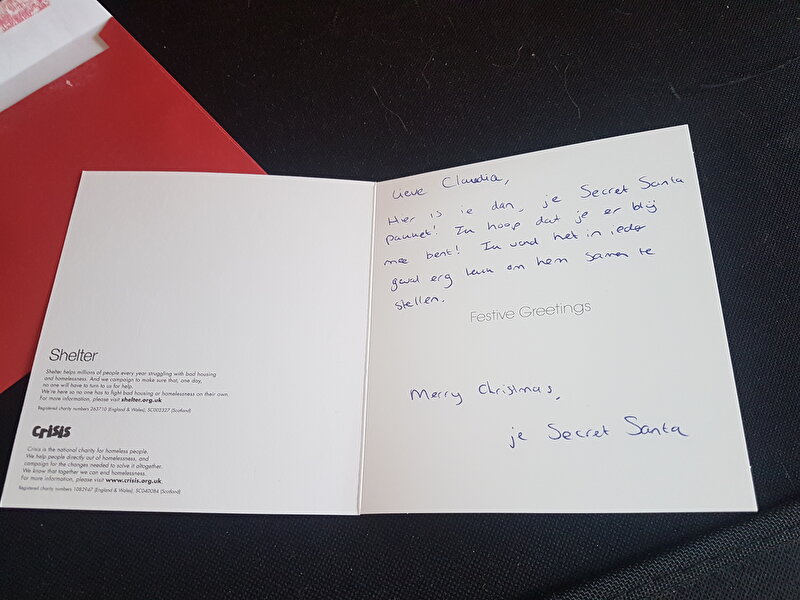 Shelter
Shelter helps millions of people every year struggling with bad housing
and homelessness. And we campaign to make sure that, one day,
no one will have to turn to us for help.
We're here so no one has to fight bad housing or homelessness on their own.
For more information, please visit shelter.org.uk
Registered charity numbers 263710 (England & Wales), SC002327 (Scotland)
Crisis
Crisis is the national charity for homeless people.
We help people directly out of homelessness, and
campaign for the changes needed to solve it altogether.
We know that together we can end homelessness.
For more information, please visit www.crisis.org.uk
Registered charity numbers 1082947 (England & Wales), SC040084 (Scotland)
Lieve Claudia,
Hier is ie dan, je Secret Santa
pakket! Ik hoop dat je er blij
mee bent! Ik vond het in ieder
geval erg leuk om hem samen te
stellen.
Festive Greetings
Merry Christmas,
je Secret Santa